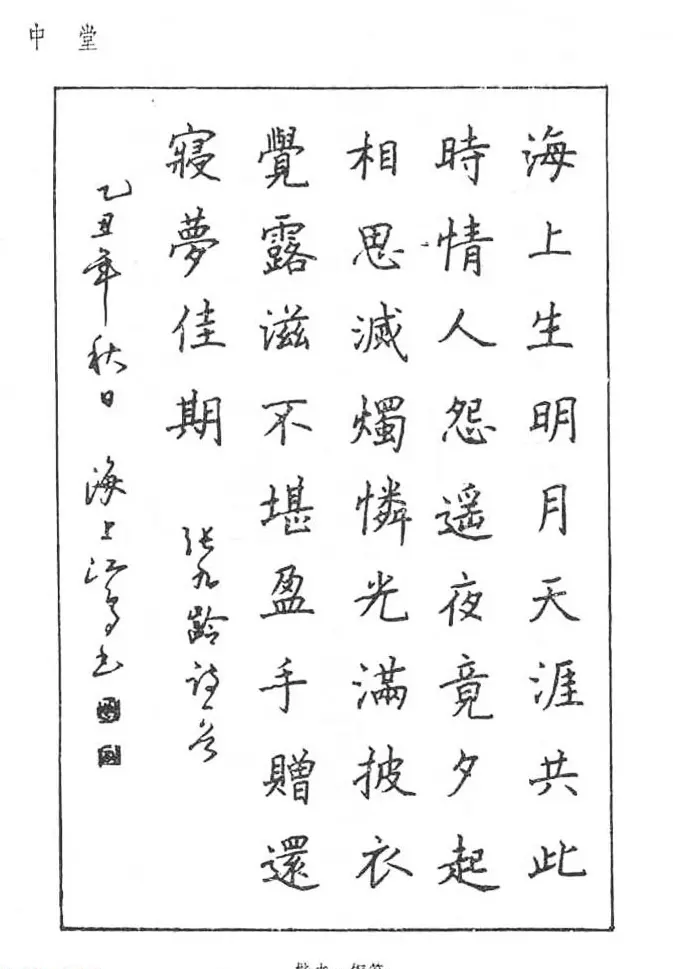 中堂
海上生明月天涯共此
時情人怨遥夜竟夕起
相思滅燭憐光滿披衣
覺露滋不堪盈手贈還
寢夢佳期
张九龄诗一首
乙丑年秋日 海上江鸟书